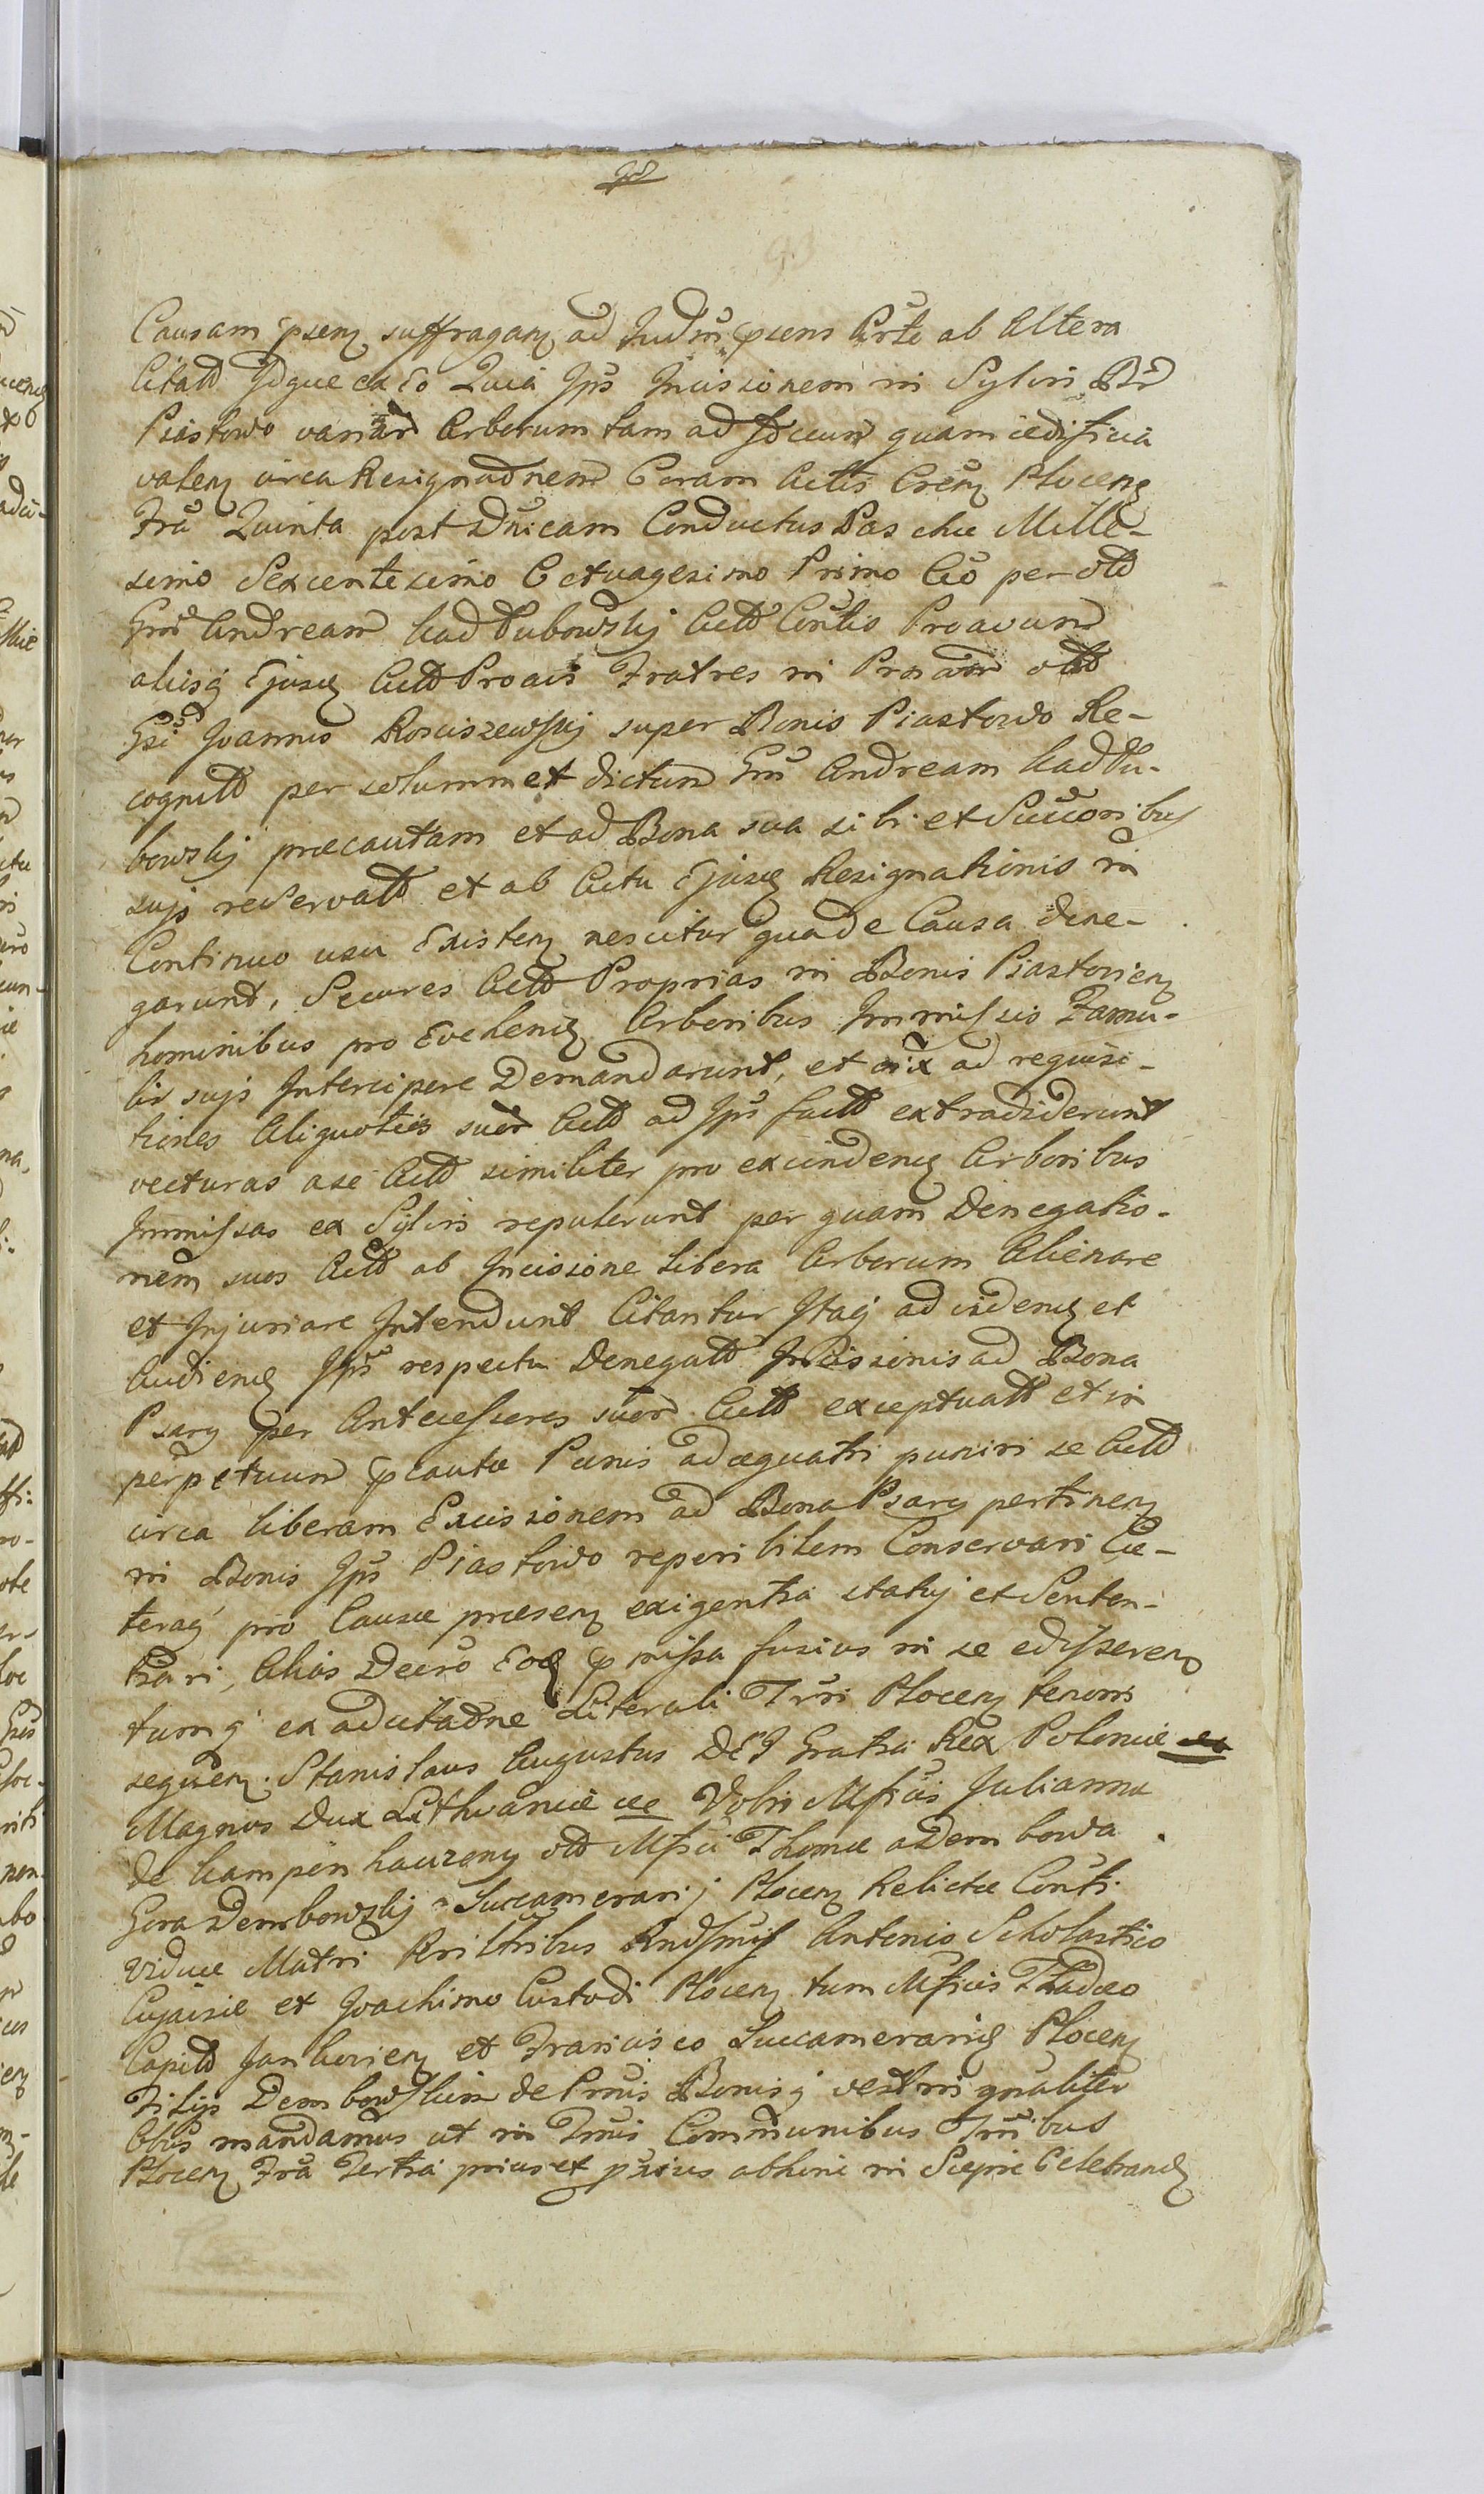 93
Causam psen suffragan ad Judm psens Prte ab Altera
Citatt Idque ex Eo Quia Ips Incisionem in Sylvis Br
Piastowo variar Arborum tam ad focum quam ædificia
valen circa Resignadnem Coram Actis Cren Plocen
Fra Quinta post Dnicam Conductus Paschæ Mille-
simo Sexcentesimo Octuagesimo Primo Ao per otd
Gnd Andream Kadłubowskj Actt Contio Proavum
aliosq Ejusd Actt Proavi Fratres in Prsam ottd
Gsi Joannis Rosciszewskj super Bonis Piastowo Re-
cognitt per solummet dictum Gns Andream Kadłu-
bowskj præcautam et ad Bona sua sibi et Succoribus
sujs reservatt et ab Actu Ejusd Resignationis in
Continuo usu Existen nescitur qua de Causa dene-
garunt, Secures Actt Proprias in Bonis Piastovien
hominibus pro Evehend Arboribus Immissis Famu-
lis sujs Intercipere Demandarunt, et vix ad requisi-
tiones Aliquoties suor Actt ad Ips factt extradiderunt
vecturas ase Actt similiter pro excindend Arboribus
Immissas ex Sylvis repulerunt per quam Denegatio-
nem suos Actt ab Incisione libera Arborum Alienare
et Injuriare Intendunt Citantur Itaq ad vidend et
Audiend Ips respectu Denegatt Incissionis ad Bona
Psary per Antecessores suor Actt exceptuatt et in
perpetuum pcautæ Pænis adæquatis puniri se Actt
circa liberam Excissionem ad Bona Psary pertinen
in Bonis Ips Piastowo reperibilem Conservari Cæ-
teraq pro Causæ præsen exigentia statuj et Senten-
tiari, Alias Decro Eod pmissa fusius in se edisseren
tumq ex adcitadne Literali Trri Plocen tenoris
sequen. Stanislaus Augustus DEI Gratia Rex Poloniæ
Magnus Dux Lithvaniæ &c Vobis Mficis Julianna
de Kampenhauzeny otd Mfici Thomæ a Dembowa
Gora Dembowskj Succamerarij Plocen Relictæ Conti
viduæ Matri Rilltribus Rndsmis Antonio Scholastico
Cujaviæ et Joachimo Custodi Plocen tum Mficis Thadæo
Capitd Jankovien et Francisco Succamerarid Plocen
Filijs Dembowskim de Prnis Bonisq vestris gnaliter
Obus mandamus ut in Trmis Communibus Trribus
Plocen Fra Tertia prius et pxius abhinc in Sieprc Celebrand